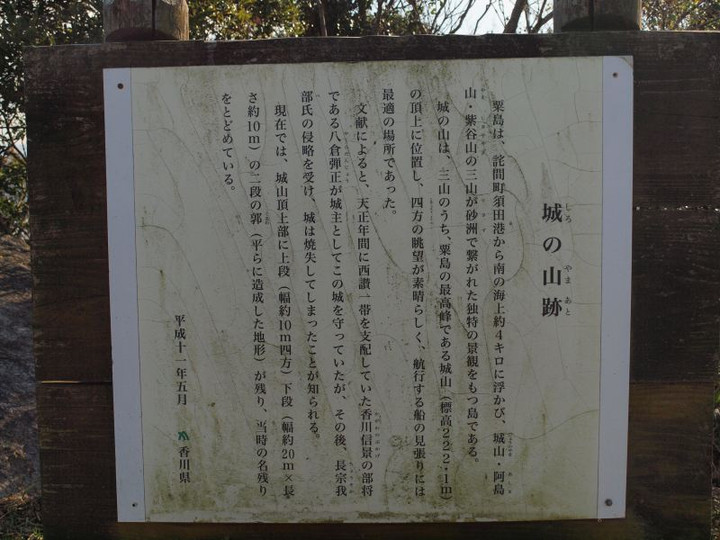 城の山跡
しろ やま あと
粟島は、詫間町須田港から南の海上約4キロに浮かび、城山・阿島
山・紫谷山の三山が砂洲で繋がれた独特の景観をもつ島である。
城の山は、三山のうち、粟島の最高峰である城山（標高222・1m）
の頂上に位置し、四方の眺望が素晴らしく、航行する船の見張りには
最適の場所であった。
文献によると、天正年間に西讃一帯を支配していた香川信景の部将
である八倉弾正が城主としてこの城を守っていたが、その後、長宗我
部氏の侵略を受け、城は焼失してしまったことが知られる。
現在では、城山頂上部に上段（幅約10m四方）下段（幅約20m×長
さ約10m）の二段の郭（平らに造成した地形）が残り、当時の名残り
をとどめている。
平成十一年五月 香川県